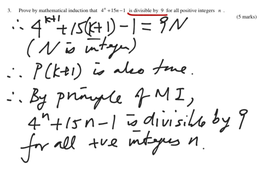 3. Prove by mathematical induction that 4ⁿ+15n−1 is divisible by 9 for all positive integers n.
(5 marks)
∴ 4ᵏ⁺¹+15(k+1)−1=9N
(N is integer)
∴ P(k+1) is also true.
∴ By principle of MI,
4ⁿ+15n−1 is divisible by 9
for all +ve integers n.